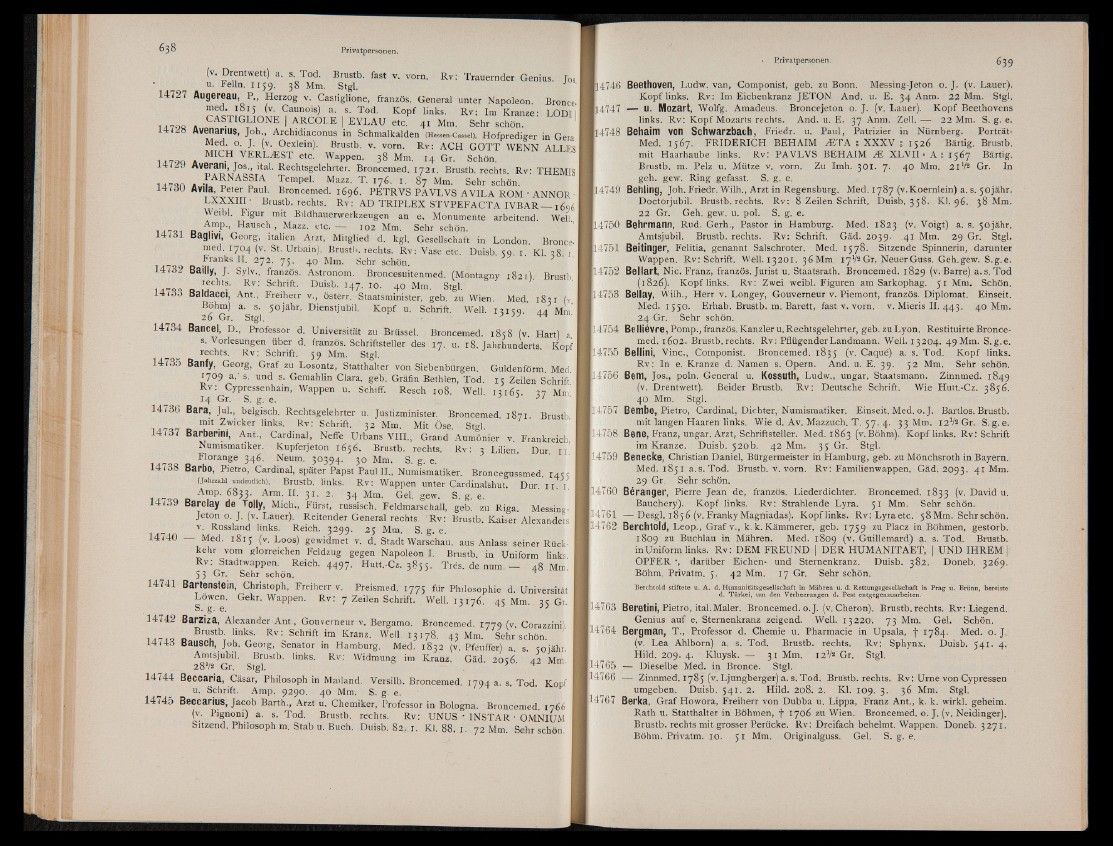 638
Privatpersonen.
(v. Drentwett) a. s. Tod. Brustb. fast v. vorn. Rv: Trauernder Genius. Jos.
u. Felln. 1159. 38 Mm. Stgl.
14727 Augereau, P., Herzog v. Castiglione, französ. General unter Napoleon. Bronce-
med. 1815 (v. Caunois) a. s. Tod. Kopf links. Rv: Im Kranze: LODI |
CASTIGLIONE | ARCOLE | EYLAU etc. 41 Mm. Sehr schön.
14728 Avenarius, Joh., Archidiaconus in Schmalkalden (Hessen-Cassel), Hofprediger in Gera
Med. o. J. (v. Oexlein). Brustb. v. vorn. Rv: ACH GOTT WENN ALLES
MICH VERLÆST etc. Wappen. 38 Mm. 14 Gr. Schön.
14729 Averani, Jos., ital. Rechtsgelehrter. Broncemed. 1721. Brustb. rechts. Rv: THEMIS
PARNASSIA Tempel. Mazz. T. 176. 1. 87 Mm. Sehr schön.
14730 Avila, Peter Paul. Broncemed. 1696. PETRVS PAVLVS AVILA ROM · ANNOR ·
LXXXIII · Brustb. rechts. Rv: AD TRIPLEX STVPEFACTA IVBAR — 1696
Weibl. Figur mit Bildhauerwerkzeugen an e. Monumente arbeitend. Well.,
Amp., Hausch., Mazz. etc. — 102 Mm. Sehr schön.
14731 Baglivi, Georg, italien Arzt, Mitglied d. kgl. Gesellschaft in London. Bronce-
med. 1704 (v. St. Urbain). Brustb. rechts. Rv: Vase etc. Duisb. 59. 1. Kl. 38. 1.
Franks II. 272. 75. 40 Mm. Sehr schön.
14732 Bailly, J. Sylv., französ. Astronom. Broncesuitenmed. (Montagny 1821). Brustb.
rechts. Rv: Schrift. Duisb. 147. 10. 40 Mm. Stgl.
14733 Baldacci, Ant., Freiherr v., österr. Staatsminister, geb. zu Wien. Med. 1831 (v.
Böhm) a. s. 50jähr. Dienstjubil. Kopf u. Schrift. Well. 13159. 44 Mm.
26 Gr. Stgl.
14734 Bancel, D., Professor d. Universität zu Brüssel. Broncemed. 1858 (v. Hart) a.
s. Vorlesungen über d. französ. Schriftsteller des 17. u. 18. Jahrhunderts. Kopf
rechts. Rv: Schrift. 59 Mm. Stgl.
14735 Banfy, Georg, Graf zu Losontz, Statthalter von Siebenbürgen. Guldenförm. Med.
1709 a. s. und s. Gemahlin Clara, geb. Gräfin Bethlen, Tod. 15 Zeilen Schrift.
Rv: Cypressenhain, Wappen u. Schiff. Resch 108. Well. 13165. 37 Mm.
14 Gr. S. g. e.
14736 Bara, Jul., belgisch. Rechtsgelehrter u. Justizminister. Broncemed. 1871. Brustb.
mit Zwicker links. Rv: Schrift. 32 Mm. Mit Öse. Stgl.
14737 Barberini, Ant., Cardinal, Neffe Urbans VIII., Grand Aumônier v. Frankreich,
Numismatiker. Kupferjeton 1656. Brustb. rechts. Rv: 3 Lilien. Dur. 11.
Florange 346. Neum. 30394. 30 Mm. S. g. e.
14738 Barbo, Pietro, Cardinal, später Papst Paul II., Numismatiker. Broncegussmed. 1455
(Jahrzahl undeutlich). Brustb. links. Rv: Wappen unter Cardinalshut. Dur. 11. 1.
Amp. 6833. Arm. II. 31. 2. 34 Mm. Gel. gew. S. g. e.
14739 Barclay de Tolly, Mich., Fürst, russisch. Feldmarschall, geb. zu Riga. Messing-
Jeton o. J. (v. Lauer). Reitender General rechts. Rv: Brustb. Kaiser Alexanders
v. Russland links. Reich. 3299. 25 Mm. S. g. e.
14740 — Med. 1815 (v. Loos) gewidmet v. d. Stadt Warschau, aus Anlass seiner Rück-
kehr vom glorreichen Feldzug gegen Napoleon I. Brustb. in Uniform links.
Rv: Stadtwappen. Reich. 4497. Hutt.-Cz. 3855. Trés. de num. — 48 Mm.
53 Gr. Sehr schön.
14741 Bartenstein, Christoph, Freiherr v. Preismed. 1775 für Philosophie d. Universität
Löwen. Gekr. Wappen. Rv: 7 Zeilen Schrift. Well. 13176. 45 Mm. 35 Gr.
S. g. e.
14742 Barziza, Alexander Ant., Gouverneur v. Bergamo. Broncemed. 1779 (v. Corazzini).
Brustb. links. Rv: Schrift im Kranz. Well. 13178. 43 Mm. Sehr schön.
14743 Bausch, Joh. Georg, Senator in Hamburg. Med. 1832 (v. Pfeuffer) a. s. 50jähr.
Amtsjubil. Brustb. links. Rv: Widmung im Kranz. Gäd. 2056. 42 Mm.
28½ Gr. Stgl.
14744 Beccaria, Cäsar, Philosoph in Mailand. Versilb. Broncemed. 1794 a. s. Tod. Kopf
u. Schrift. Amp. 9290. 40 Mm. S. g. e.
14745 Beccarius, Jacob Barth., Arzt u. Chemiker, Professor in Bologna. Broncemed. 1766
(v. Pignoni) a. s. Tod. Brustb. rechts. Rv: UNUS · INSTAR · OMNIUM
Sitzend. Philosoph m. Stab u. Buch. Duisb. 82. 1. Kl. 88. 1. 72 Mm. Sehr schön.
Privatpersonen.
639
14746 Beethoven, Ludw. van, Componist, geb. zu Bonn. Messing-Jeton o. J. (v. Lauer).
Kopf links. Rv: Im Eichenkranz JETON And. u. E. 34 Anm. 22 Mm. Stgl.
14747 — u. Mozart, Wolfg. Amadeus. Broncejeton o. J. (v. Lauer). Kopf Beethovens
links. Rv: Kopf Mozarts rechts. And. u. E. 37 Anm. Zell. — 22 Mm. S. g. e.
14748 Behaim von Schwarzbach, Friedr. u. Paul, Patrizier in Nürnberg. Porträt-
Med. 1567. FRIDERICH BEHAIM ÆTA : XXXV : 1526 Bärtig. Brustb.
mit Haarhaube links. Rv: PAVLVS BEHAIM Æ XLVII · A : 1567 Bärtig.
Brustb. m. Pelz u. Mütze v. vorn. Zu Imh. 301. 7. 40 Mm. 21½ Gr. In
geh. gew. Ring gefasst. S. g. e.
14749 Behling, Joh. Friedr. Wilh., Arzt in Regensburg. Med. 1787 (v. Koernlein) a. s. 50jähr.
Doctorjubil. Brustb. rechts. Rv: 8 Zeilen Schrift. Duisb. 358. Kl. 96. 38 Mm.
22 Gr. Geh. gew. u. pol. S. g. e.
14750 Behrmann, Rud. Gerh., Pastor in Hamburg. Med. 1823 (v. Voigt) a. s. 50jähr.
Amtsjubil. Brustb. rechts. Rv: Schrift. Gäd. 2039. 41 Mm. 29 Gr. Stgl.
14751 Beitinger, Felitia, genannt Salschroter. Med. 1578. Sitzende Spinnerin, darunter
Wappen. Rv: Schrift. Well. 13201. 36 Mm 17½ Gr. Neuer Guss. Geh. gew. S. g. e.
14752 Bellart, Nic. Franz, französ. Jurist u. Staatsrath. Broncemed. 1829 (v. Barre) a. s. Tod
(1826). Kopf links. Rv: Zwei weibl. Figuren am Sarkophag. 51 Mm. Schön.
14753 Bellay, Wilh., Herr v. Longey, Gouverneur v. Piemont, französ. Diplomat. Einseit.
Med. 1550. Erhab. Brustb. m. Barett, fast v. vorn. v. Mieris II. 443. 40 Mm.
24 Gr. Sehr schön.
14754 Bellièvre, Pomp., französ. Kanzler u. Rechtsgelehrter, geb. zu Lyon. Restituirte Bronce-
med. 1602. Brustb. rechts. Rv: Pflügender Landmann. Well. 13204. 49 Mm. S. g. e.
14755 Bellini, Vinc., Componist. Broncemed. 1835 (v. Caqué) a. s. Tod. Kopf links.
Rv: In e. Kranze d. Namen s. Opern. And. u. E. 39. 52 Mm. Sehr schön.
14756 Bem, Jos., poln. General u. Kossuth, Ludw., ungar. Staatsmann. Zinnmed. 1849
(v. Drentwett). Beider Brustb. Rv: Deutsche Schrift. Wie Hutt.-Cz. 3856.
40 Mm. Stgl.
14757 Bembo, Pietro, Cardinal, Dichter, Numismatiker. Einseit. Med. o. J. Bartlos. Brustb.
mit langen Haaren links. Wie d. Av. Mazzuch. T. 57. 4. 33 Mm. 12½ Gr. S. g. e.
14758 Bene, Franz, ungar. Arzt, Schriftsteller. Med. 1863 (v. Böhm). Kopf links. Rv: Schrift
im Kranze. Duisb. 520b. 42 Mm. 35 Gr. Stgl.
14759 Benecke, Christian Daniel, Bürgermeister in Hamburg, geb. zu Mönchsroth in Bayern.
Med. 1851 a. s. Tod. Brustb. v. vorn. Rv: Familienwappen. Gäd. 2093. 41 Mm.
29 Gr. Sehr schön.
14760 Béranger, Pierre Jean de, französ. Liederdichter. Broncemed. 1833 (v. David u.
Bauchery). Kopf links. Rv: Strahlende Lyra. 51 Mm. Sehr schön.
14761 — Desgl. 1856 (v. Franky Magniadas). Kopf links. Rv: Lyra etc. 58 Mm. Sehr schön.
14762 Berchtold, Leop., Graf v., k. k. Kämmerer, geb. 1759 zu Placz in Böhmen, gestorb.
1809 zu Buchlau in Mähren. Med. 1809 (v. Guillemard) a. s. Tod. Brustb.
in Uniform links. Rv: DEM FREUND | DER HUMANITAET, | UND IHREM |
OPFER ·, darüber Eichen- und Sternenkranz. Duisb. 382. Doneb. 3269.
Böhm. Privatm. 5. 42 Mm. 17 Gr. Sehr schön.
Berchtold stiftete u. A. d. Humanitätsgesellschaft in Mähren u. d. Rettungsgesellschaft in Prag u. Brünn, bereiste
d. Türkei, um den Verheerungen d. Pest entgegenzuarbeiten.
14763 Beretini, Pietro, ital. Maler. Broncemed. o. J. (v. Cheron). Brustb. rechts. Rv: Liegend.
Genius auf e. Sternenkranz zeigend. Well. 13220. 73 Mm. Gel. Schön.
14764 Bergman, T., Professor d. Chemie u. Pharmacie in Upsala, † 1784. Med. o. J.
(v. Lea Ahlborn) a. s. Tod. Brustb. rechts. Rv: Sphynx. Duisb. 541. 4.
Hild. 209. 4. Kluysk. — 31 Mm. 12½ Gr. Stgl.
14765 — Dieselbe Med. in Bronce. Stgl.
14766 — Zinnmed. 1785 (v. Ljungberger) a. s. Tod. Brustb. rechts. Rv: Urne von Cypressen
umgeben. Duisb. 541. 2. Hild. 208. 2. Kl. 109. 3. 36 Mm. Stgl.
14767 Berka, Graf Howora, Freiherr von Dubba u. Lippa, Franz Ant., k. k. wirkl. geheim.
Rath u. Statthalter in Böhmen, † 1706 zu Wien. Broncemed. o. J. (v. Neidinger).
Brustb. rechts mit grosser Perücke. Rv: Dreifach behelmt. Wappen. Doneb. 3271.
Böhm. Privatm. 10. 51 Mm. Originalguss. Gel. S. g. e.